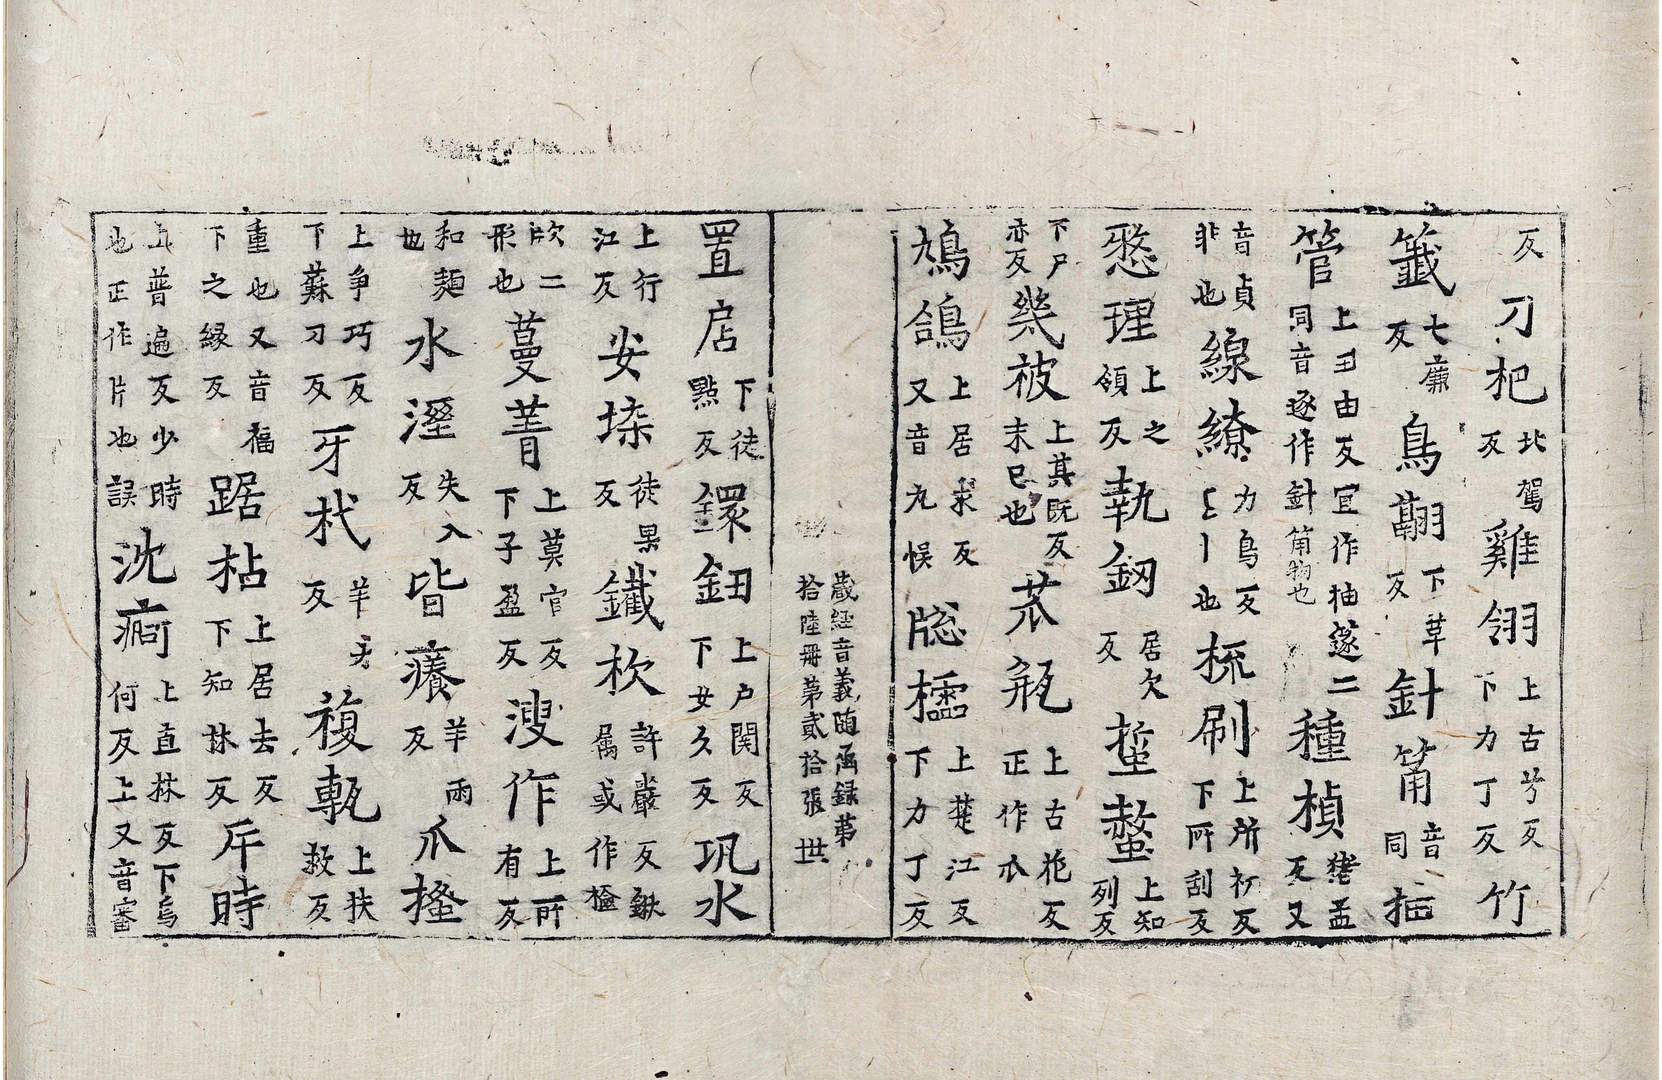 反刀杷北駕反雞翎上古兮反下力丁反竹
籤七廉反鳥翮下革反針筩音同抽
管上丑由反宜作抽遂二同音逐作針筩物也種楨猪孟反又
音貞非也線繚力鳥反又丨也梳刷上所初反下所刮反
愍理上之領反執釰居欠反蜇螫上知列反
下尸亦反幾被上其既反末巳也苽瓶上古花反正作瓜
鳩鴿上居求反又音九悮牎櫺上楚江反下力丁反
藏經音義随函録苐
拾陸冊苐貳拾張 世
置店下徒點反鐶鈕上户関反下女久反汎水
上行江反安垛徒果反鐵杴許嚴反鍁属或作㭠
杴二形也蔓菁上莫官反下子盈反溲作上所有反
和麺也水溼失入反皆癢羊兩反爪搔
上争巧反下蘇刀反牙杙羊力反複䡖上扶救反
重也又音福下之縁反踞枮上居去反下知林反斥時
上普遍反少時也正作片也誤沈痾上直林反下烏何反上又音審